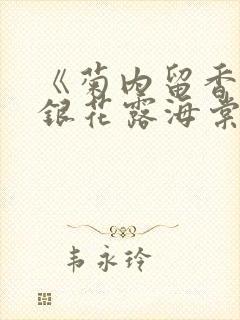 《菊内留香
银花露海棠
韦永玲